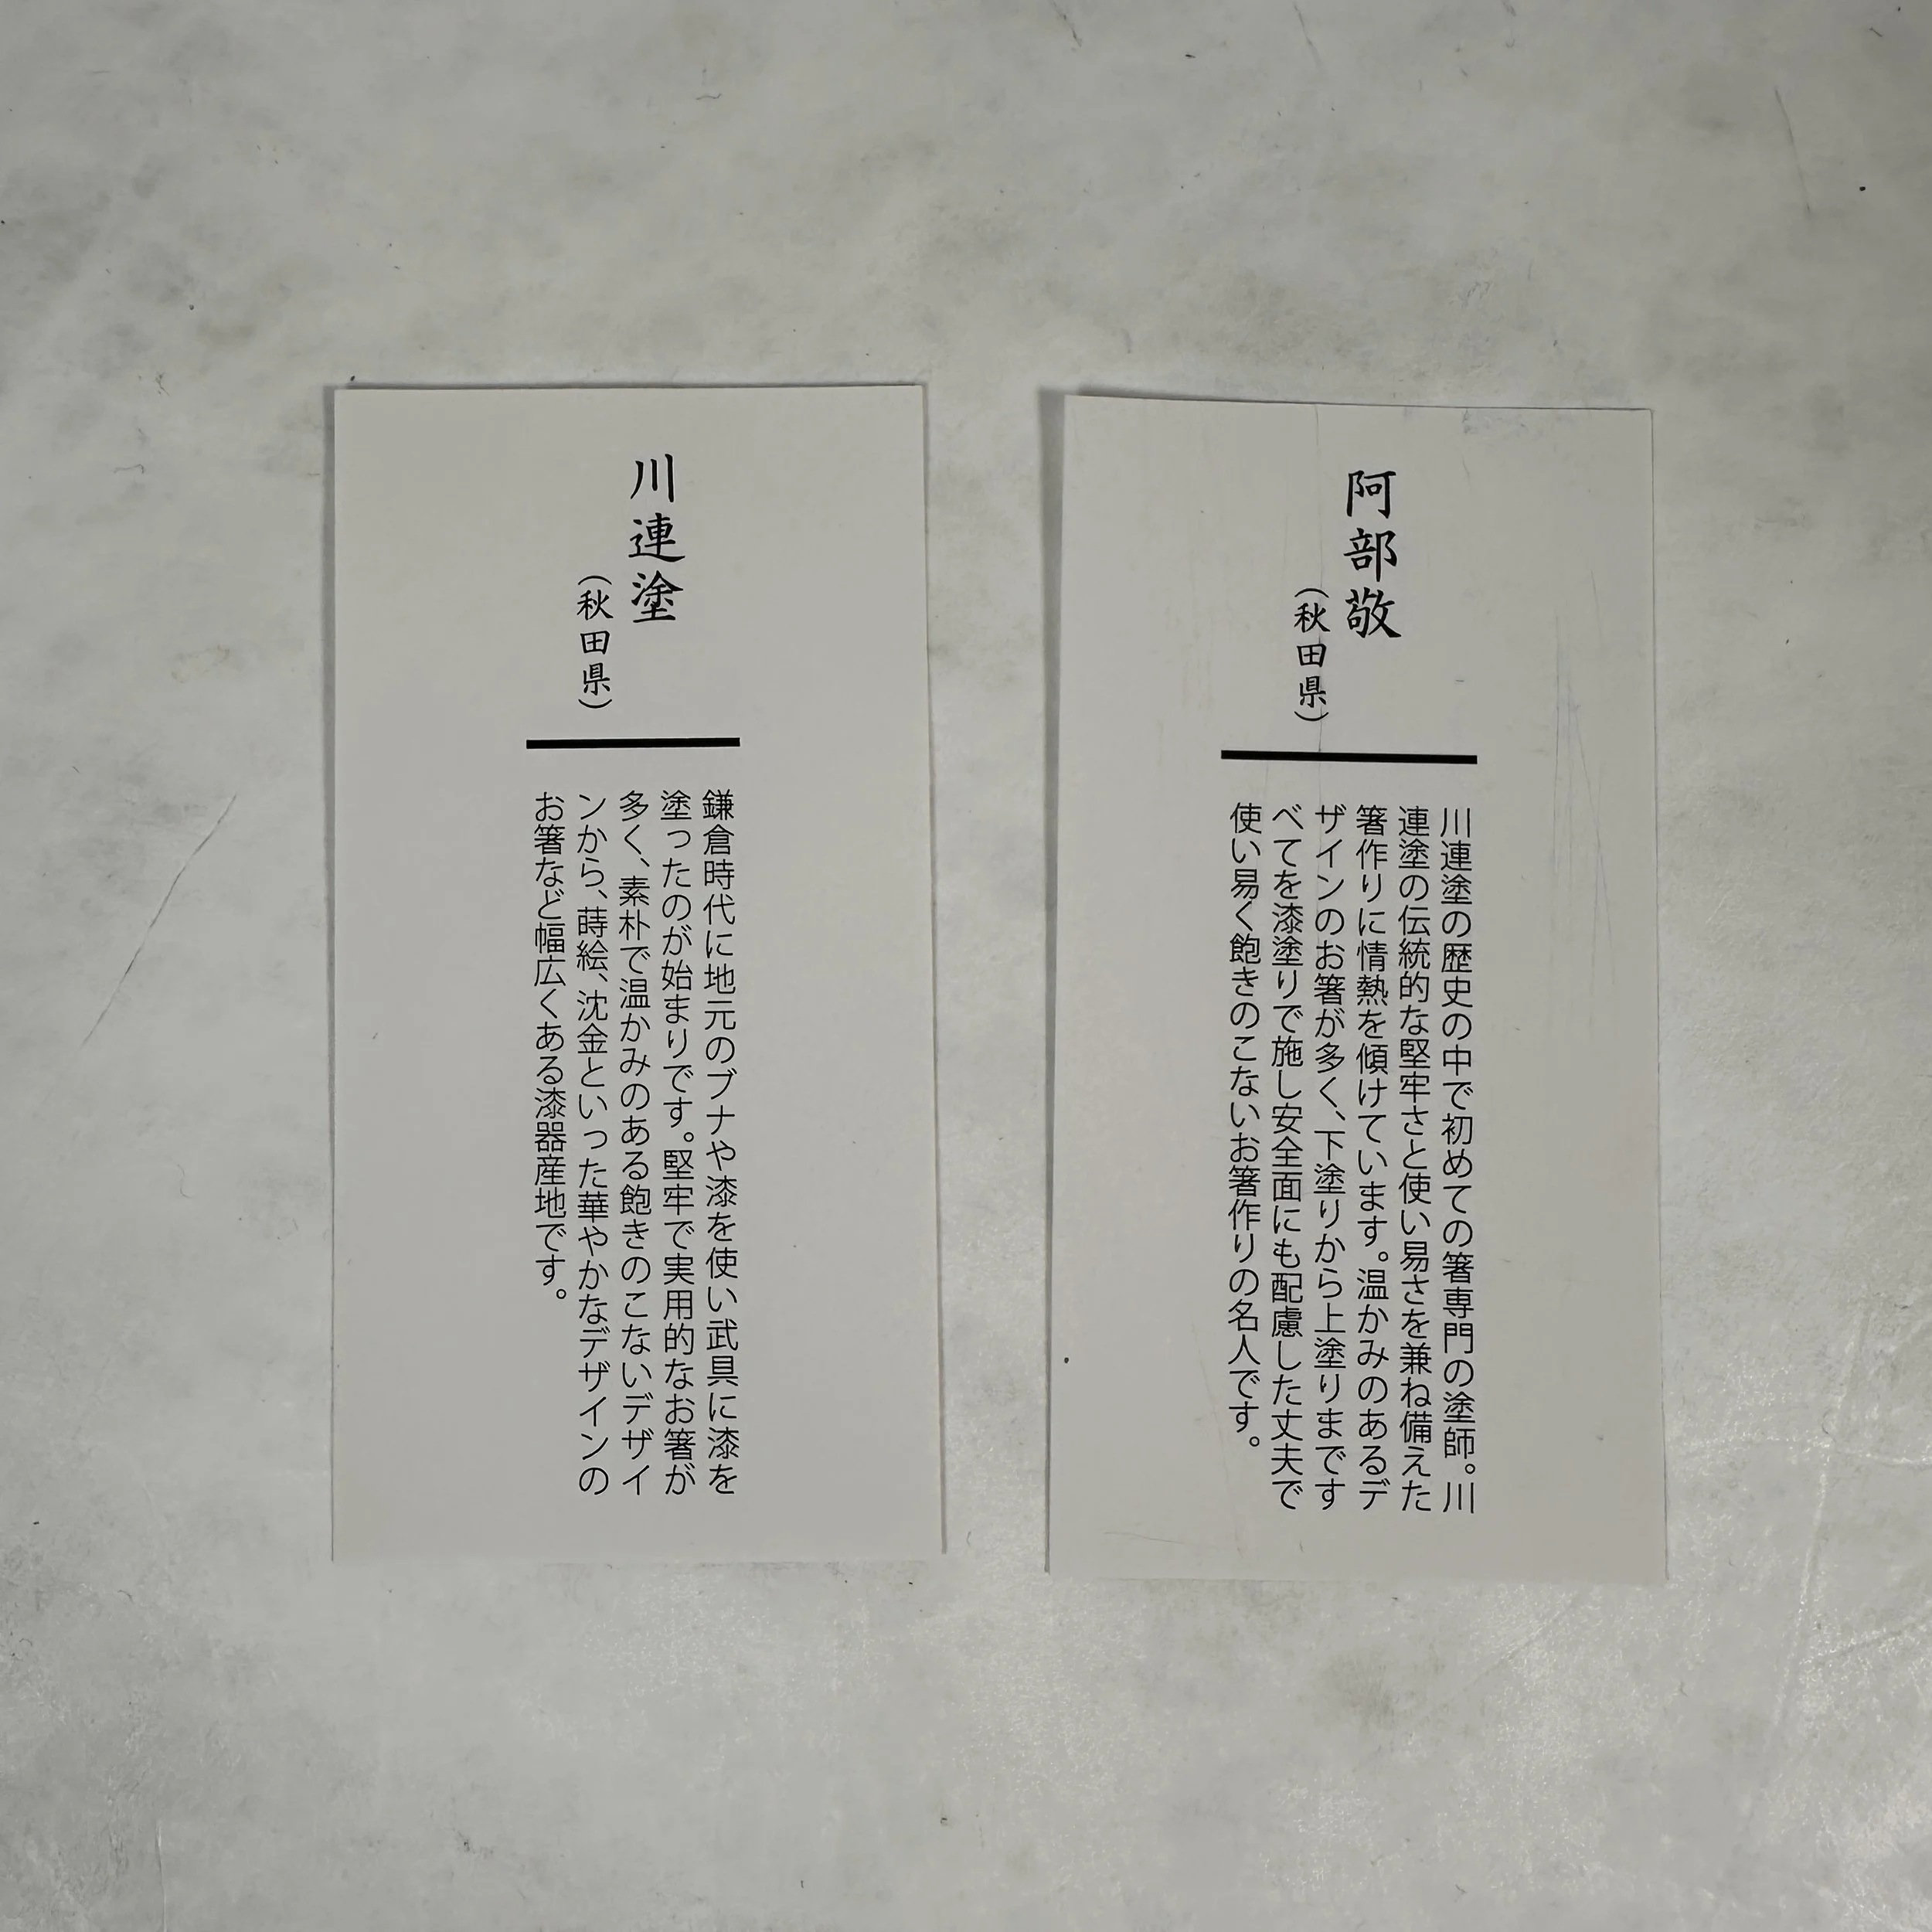 川連塗
（秋田県）
鎌倉時代に地元のブナや漆を使い武具に漆を
塗ったのが始まりです。堅牢で実用的なお箸が
多く、素朴で温かみのある飽きのこないデザイ
ンから、蒔絵、沈金といった華やかなデザインの
お箸など幅広くある漆器産地です。
阿部敬
（秋田県）
川連塗の歴史の中で初めての箸専門の塗師。川
連塗の伝統的な堅牢さと使い易さを兼ね備えた
箸作りに情熱を傾けています。温かみのあるデ
ザインのお箸が多く、下塗りから上塗りまです
べてを漆塗りで施し安全面にも配慮した丈夫で
使い易く飽きのこないお箸作りの名人です。